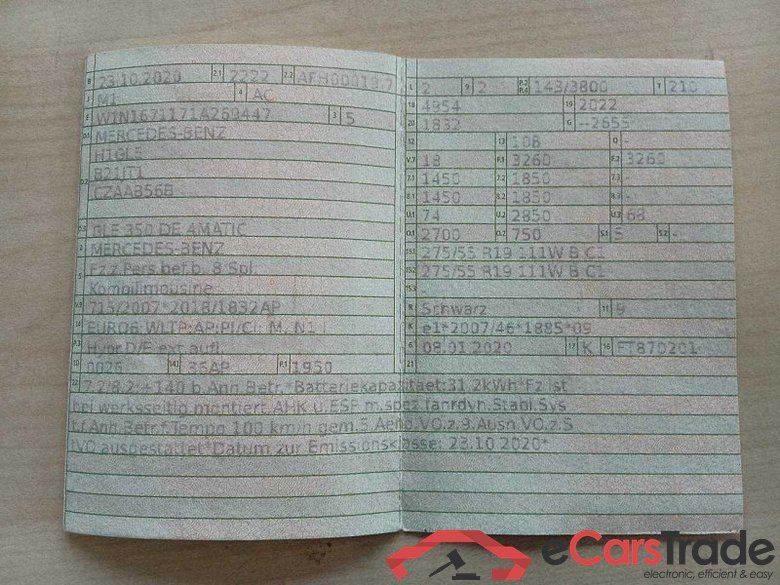 B 23.10.2020 2.1 2222 2.2
J M1 4 AC
E W1N1671171A269447 3 5
D.1 MERCEDES-BENZ
D.2 H1GLE
B21IT1
CZAAB56B
D.3 GLE 350 DE 4MATIC
2 MERCEDES-BENZ
5 Fz.z.Pers.bef.b. 8 Spl.
Kombilimousine
V.9 715/2007*2018/1832AP
14 EURO6;WLTP;AP;PI/CI; M, N1 I
P.3 Hybr.D/E ext.aufl.
10 0026 14.1 36AP P.1 1950
22 7.2/8.2:+140 b.Ann.Betr.*Batteriekapazitaet:31.2kWh*Fz ist
bei werksseitig montiert.AHK u.ESP m.spez.fahrdyn.Stabi.Sys
f.Anh.Betr.*Tempo 100 km/h gem.5.Aend.VO.z.9.Ausn.VO.z.S
tVO ausgestattet*Datum zur Emissionsklasse: 23.10.2020*
L 2 9 2 P.2 P.4 143/3800 T 210
18 4954 19 2022
20 1832 G --2655
12 - 13 108 Q -
V.7 18 F.1 3260 F.2 3260
7.1 1450 7.2 1850 7.3 -
8.1 1450 8.2 1850 8.3 -
U.1 74 U.2 2850 U.3 68
O.1 2700 O.2 750 S.1 5 S.2 -
15.1 275/55 R19 111W B C1
15.2 275/55 R19 111W B C1
15.3 -
R Schwarz 11 9
K e1*2007/46*1885*09
6 08.01.2020 17 K 16 FT870201
21
eCarsTrade
electronic, efficient & easy